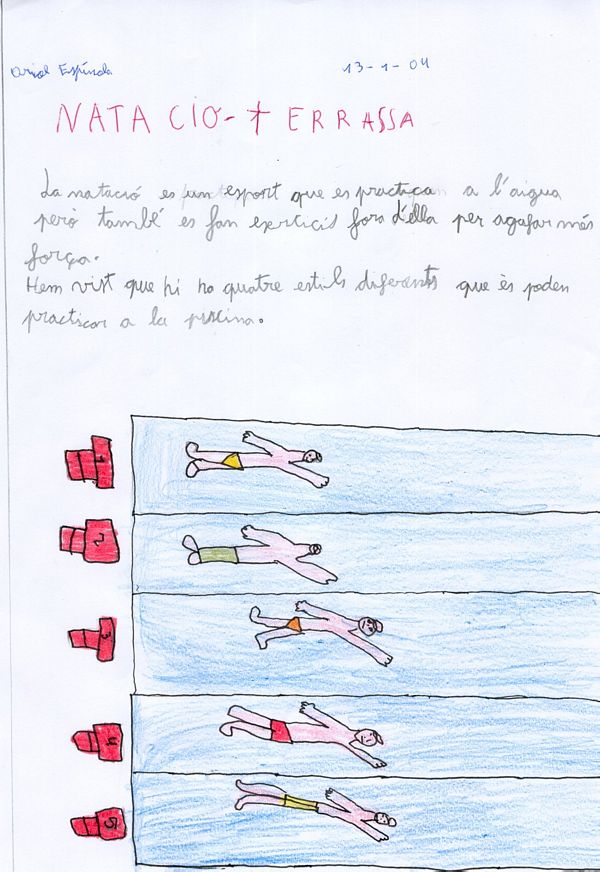 Oriol Espínola 13-1-04
NATACIÓ-TERRASSA
La natació es un esport que es practica a l'aigua
però també es fan exercicis fora d'ella per agafar més
força.
Hem vist que hi ha quatre estils diferents que és poden
practicar a la piscina.
1
2
3
4
5